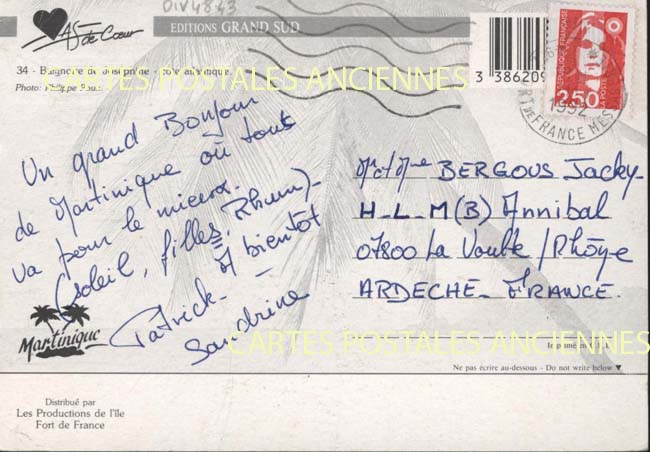 DIV4843
AS de Cœur
EDITIONS GRAND SUD
34 - Baignoire de Joséphine - côte atlantique
Photo: Philippe
CARTES POSTALES ANCIENNES
3 386209
RÉPUBLIQUE FRANÇAISE
2,50
LA POSTE
1992
FORT de FRANCE MES
Un grand Bonjour
de Martinique où tout
va pour le mieux.
(soleil, filles, Rhum)-
A bientôt
Patrick-
Sandrine
Mr et Mme BERGOUS Jacky-
H-L-M (B) Annibal
07800 La Voulte / Rhône
ARDECHE - FRANCE.
Martinique
CARTES POSTALES ANCIENNES
Imprimé en C.E.E.
Ne pas écrire au-dessous - Do not write below ▼
Distribué par
Les Productions de l'île
Fort de France